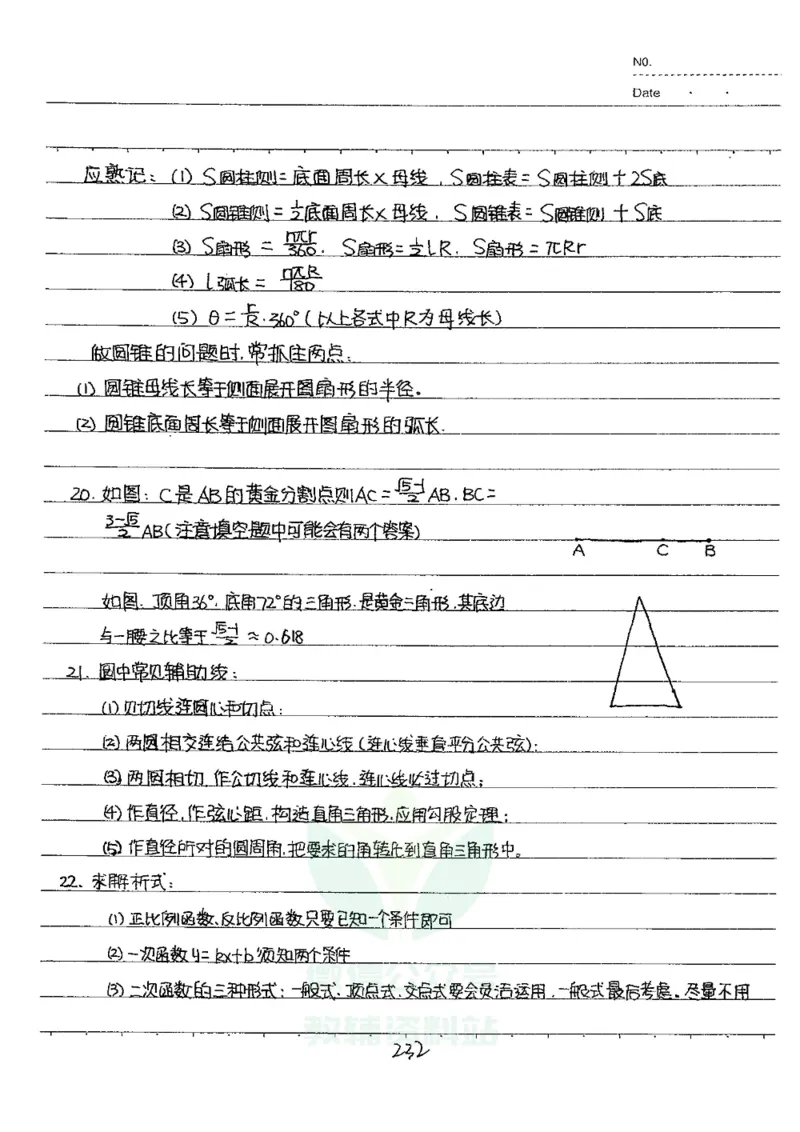 NO.
Date
应熟记：(1) S圆柱侧=底面周长×母线，S圆柱表=S圆柱侧+2S底
(2) S圆锥侧=½底面周长×母线，S圆锥表=S圆锥侧+S底
(3) S扇形=nπr/360，S扇形=½LR，S扇形=πRr
(4) L弧长=nπR/180
(5) θ=r/R·360°(以上各式中R为母线长)
做圆锥的问题时，常抓住两点：
(1) 圆锥母线长等于侧面展开图扇形的半径。
(2) 圆锥底面周长等于侧面展开图扇形的弧长.
20. 如图：C是AB的黄金分割点则AC=(√5-1)/2 AB，BC=
(3-√5)/2 AB(注意填空题中可能会有两个答案)
A C B
如图，顶角36°，底角72°的三角形，是黄金三角形，其底边
与一腰之比等于(√5-1)/2≈0.618
21. 圆中常见辅助线：
(1)见切线连圆心和切点；
(2)两圆相交连结公共弦和连心线(连心线垂直平分公共弦)；
(3)两圆相切，作公切线和连心线，连心线必过切点；
(4)作直径，作弦心距，构造直角三角形，应用勾股定理；
(5)作直径所对的圆周角，把要求的角转化到直角三角形中。
22. 求解析式：
(1)正比例函数、反比例函数只要已知一个条件即可
(2)一次函数y=kx+b须知两个条件
(3)二次函数的三种形式：一般式、顶点式、交点式要会灵活运用，一般式最后考虑。尽量不用
微信公众号
教辅资料站
232